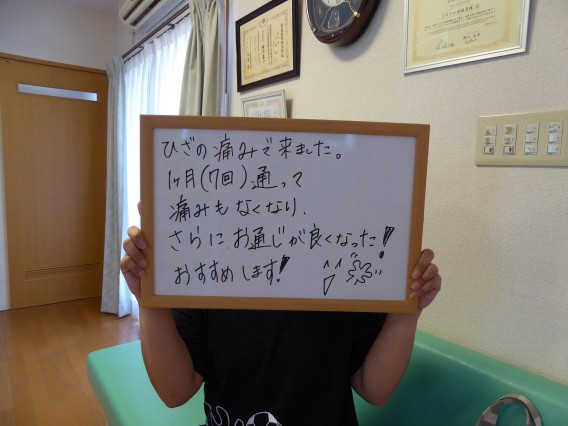 ひざの痛みで来ました。
1ヶ月(7回)通って
痛みもなくなり、
さらにお通じが良くなった!
おすすめします!